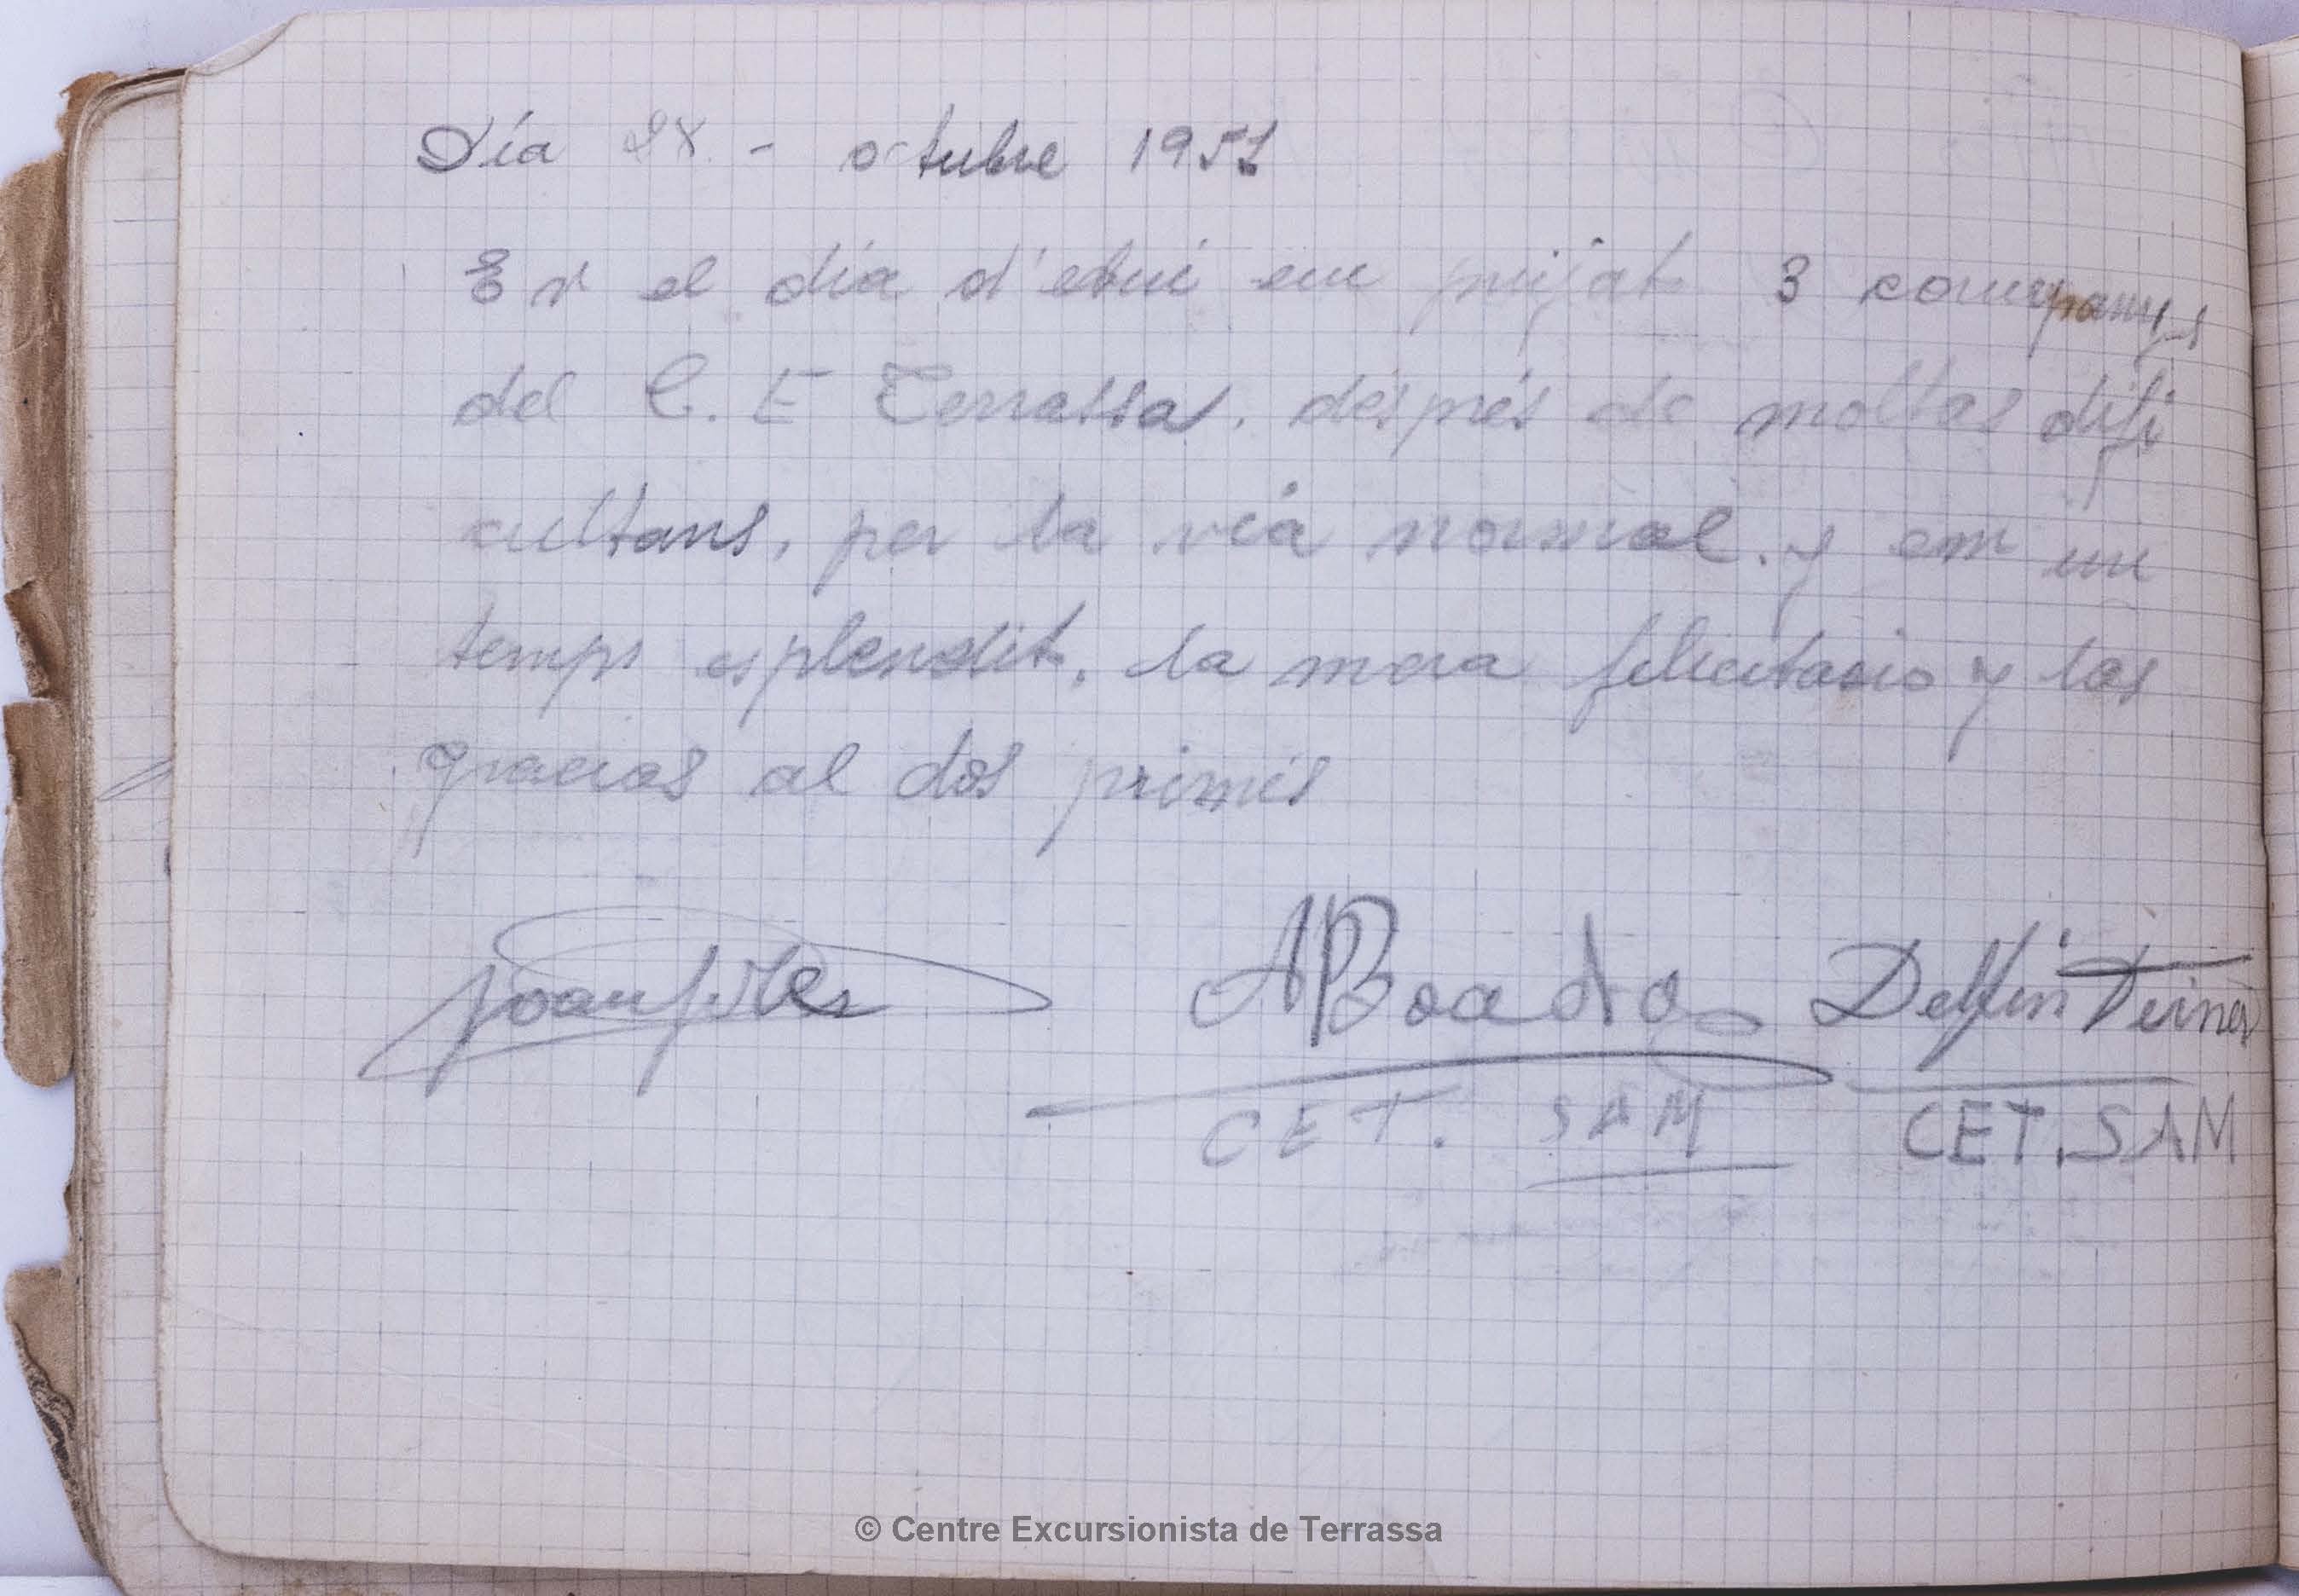 Día 28 - octubre 1951
En el día d'ebui em pujat 3 companys
del C. E Terrassa, després de moltas difi
cultans, per la vía normal. y am un
temps esplendit. la mera felicitacio y las
gracias al dos primés
Joan
A Boada Delfin
CET. SAM CET. SAM
© Centre Excursionista de Terrassa